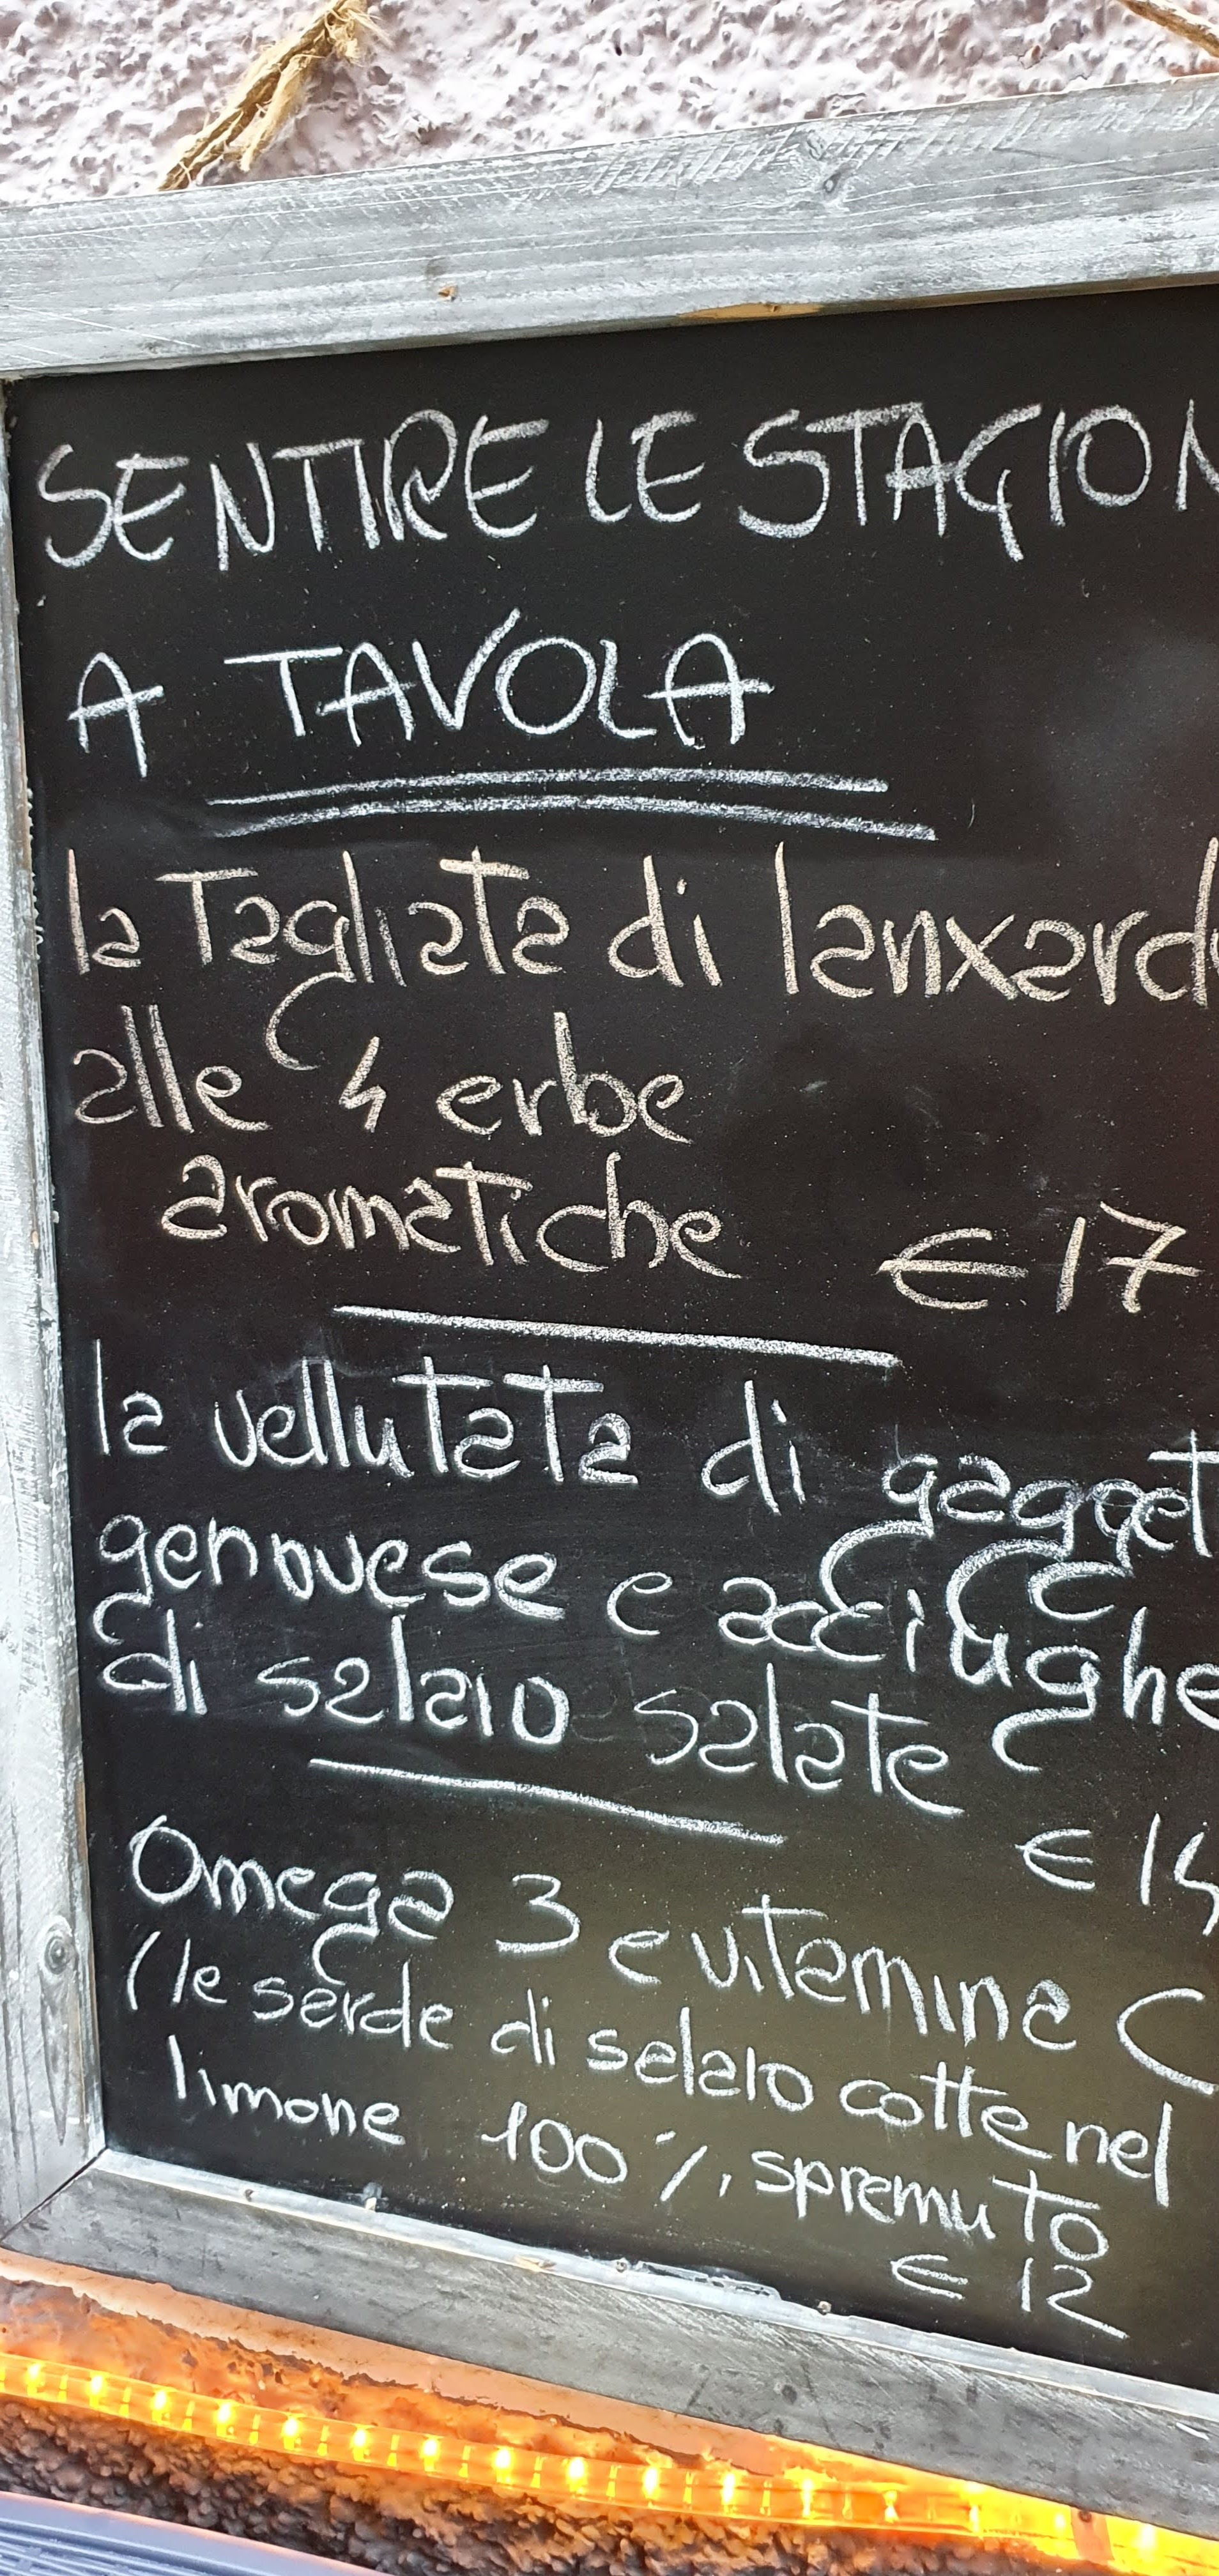 SENTIRE LE STAGION
A TAVOLA
la Tagliata di lanxard
alle 4 erbe
aromatiche €17
la vellutata di gagget
genovese e acciughe
di selaio salate
€ 14
Omega 3 e vitamina C
(le sarde di selaio cotte nel
limone 100%, spremuto
€ 12